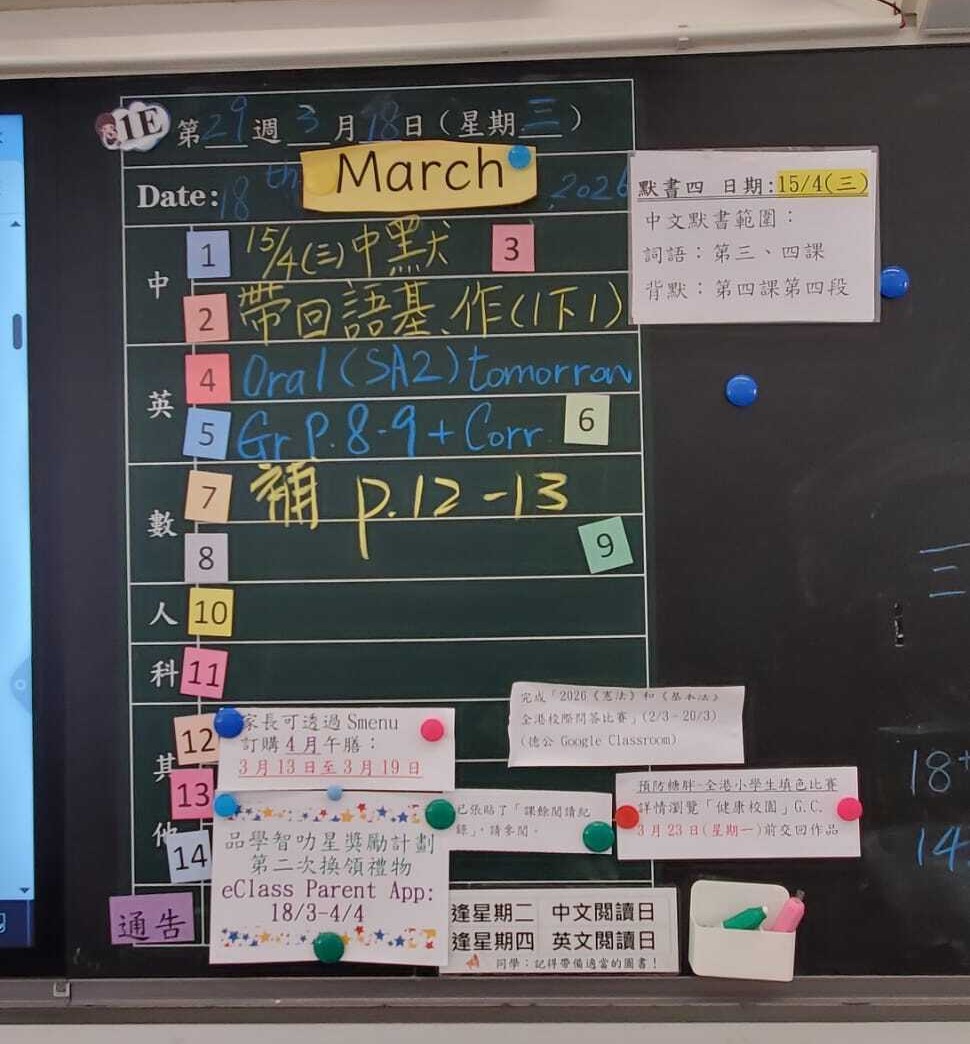 1E 第29週3月18日（星期三）
Date: 18th March, 2026
中
1 15/4(三)中默 3
2 帶回語基、作(1下1)
英
4 Oral (SA2) tomorrow
5 Gr P. 8-9 + Corr. 6
數
7 補 p.12-13
8 9
人 10
科 11
其他
12
13
14
通告
默書四 日期:15/4(三)
中文默書範圍：
詞語：第三、四課
背默：第四課第四段
家長可透過 Smenu
訂購 4 月午膳：
3 月 13 日至 3 月 19 日
品學智叻星獎勵計劃
第二次換領禮物
eClass Parent App:
18/3-4/4
完成「2026《憲法》和《基本法》
全港校際問答比賽」(2/3-20/3)
(德公 Google Classroom)
已張貼了「課餘閱讀紀
錄」，請參閱。
預防糖胖-全港小學生填色比賽
詳情瀏覽「健康校園」G.C.
3 月 23 日(星期一)前交回作品
逢星期二 中文閱讀日
逢星期四 英文閱讀日
同學：記得帶備適當的圖書！
三
18+
14